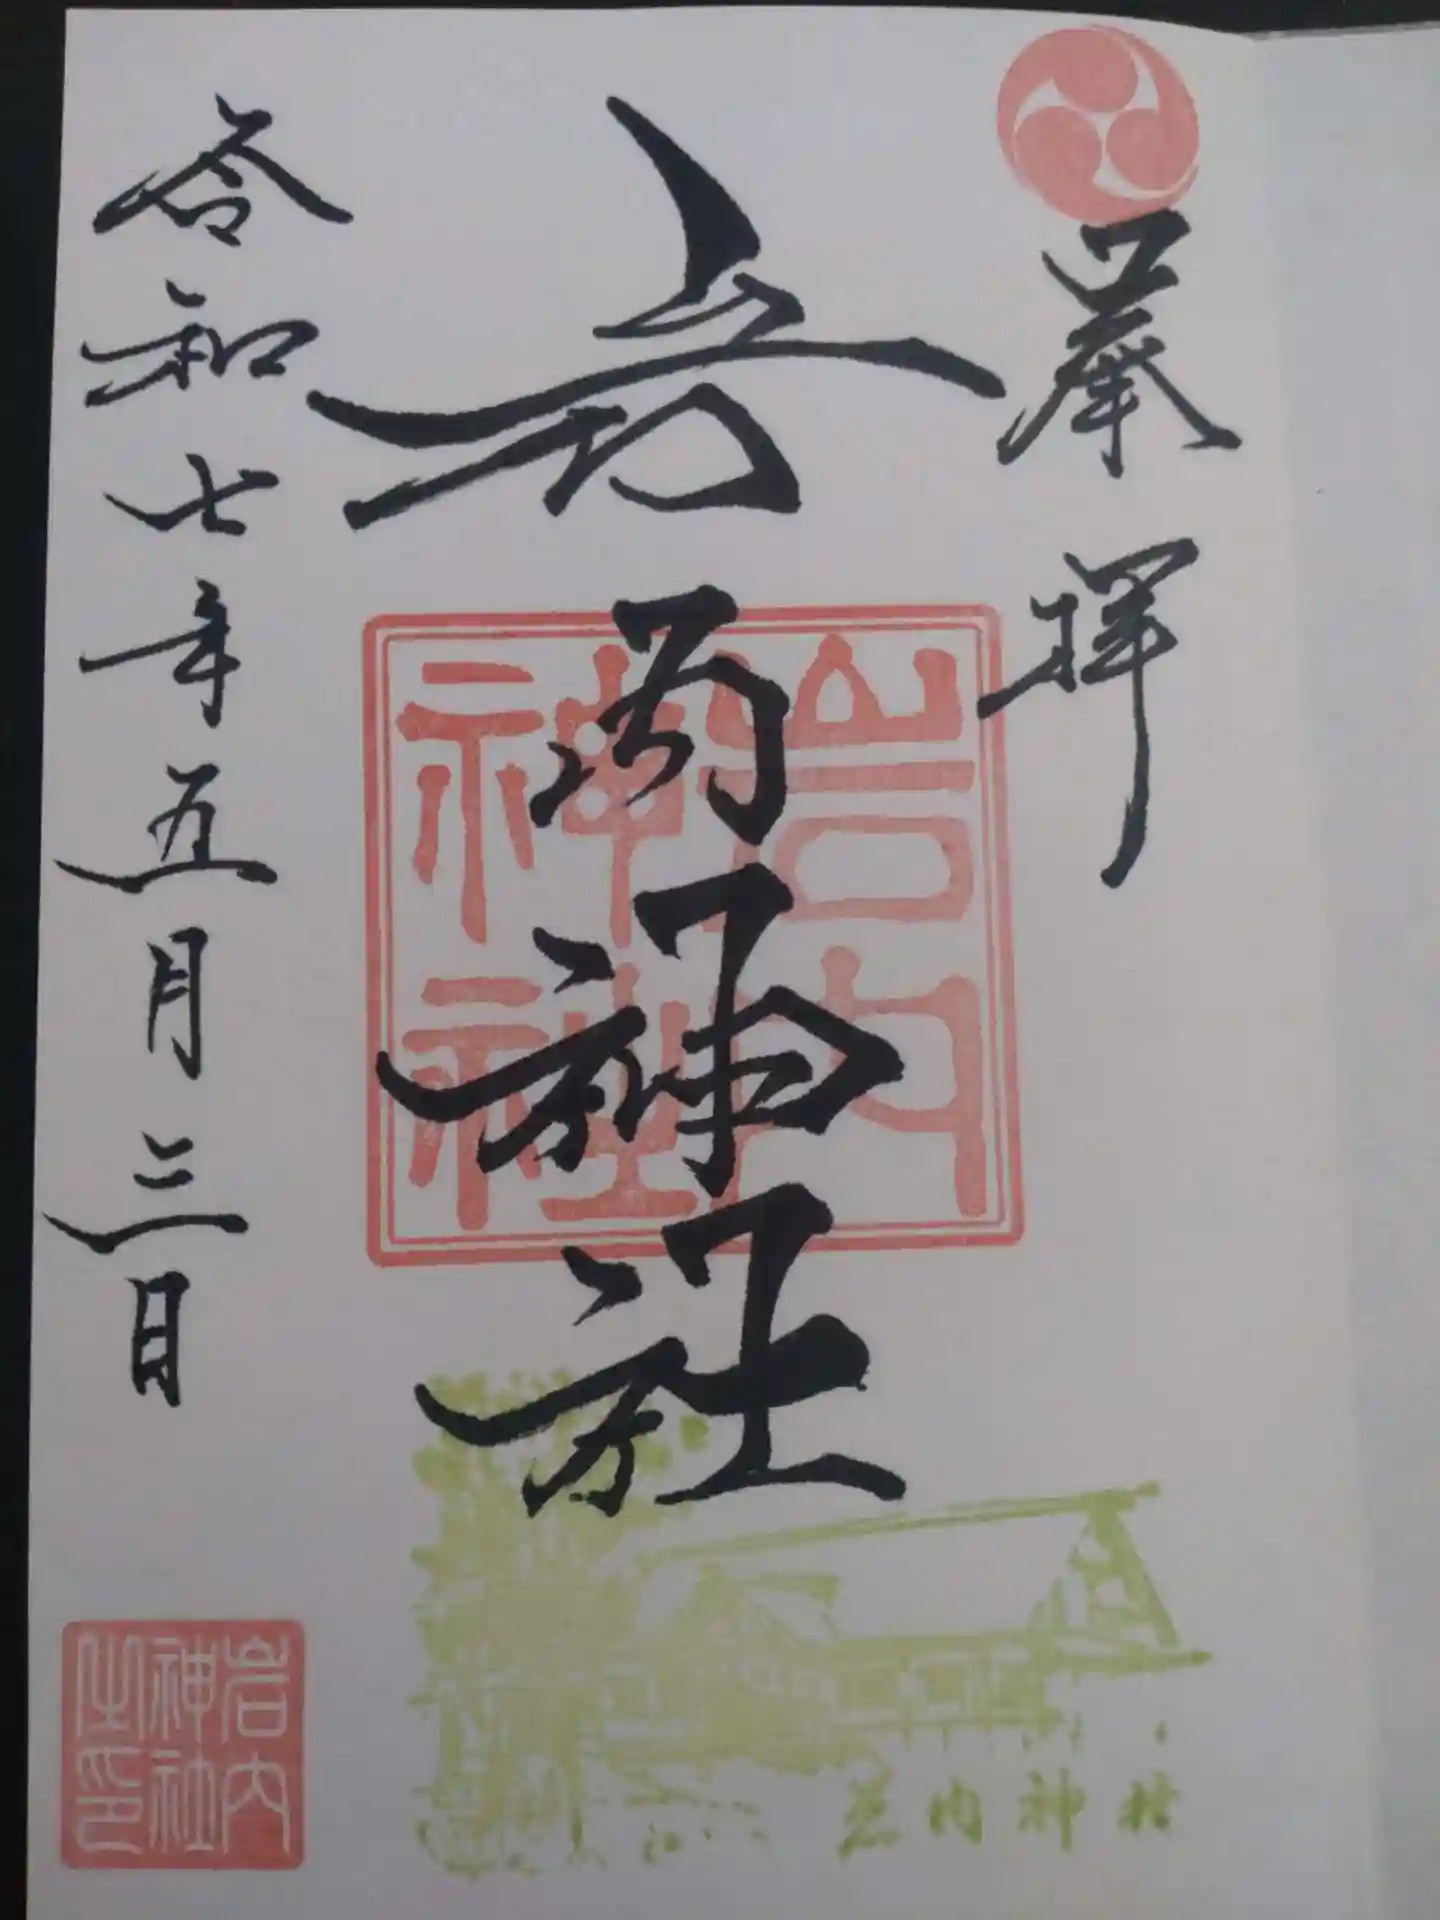 奉拝
岩内神社
岩内
神社
令和七年五月三日
岩内神社之印
岩内神社